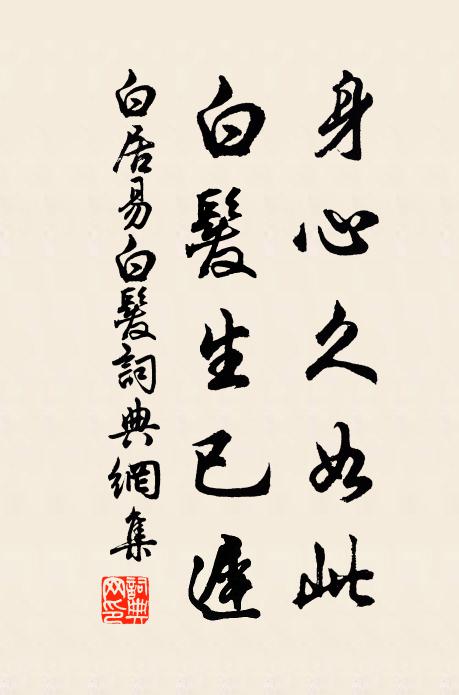 身心久如此
白髮生已遲
白居易白髮詞典網集
詞典网印